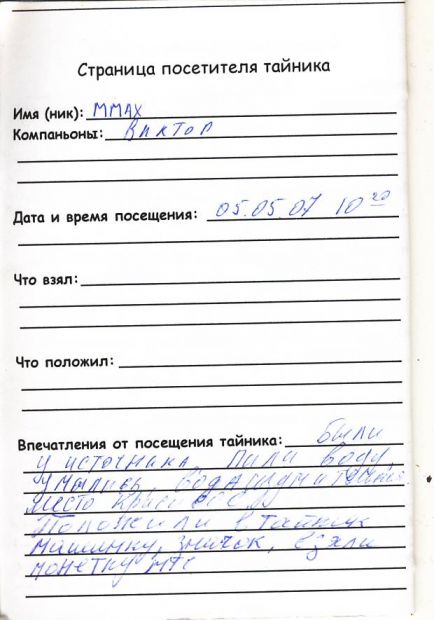 Страница посетителя тайника
Имя (ник): ММАХ
Компаньоны: Виктор
Дата и время посещения: 05.05.07 10 20
Что взял:
Что положил:
Впечатления от посещения тайника: Были
у источника. Пили воду,
умылись. Вода
Место красивое
Положили в тайник
машинку, значок, взяли
монетку МТС